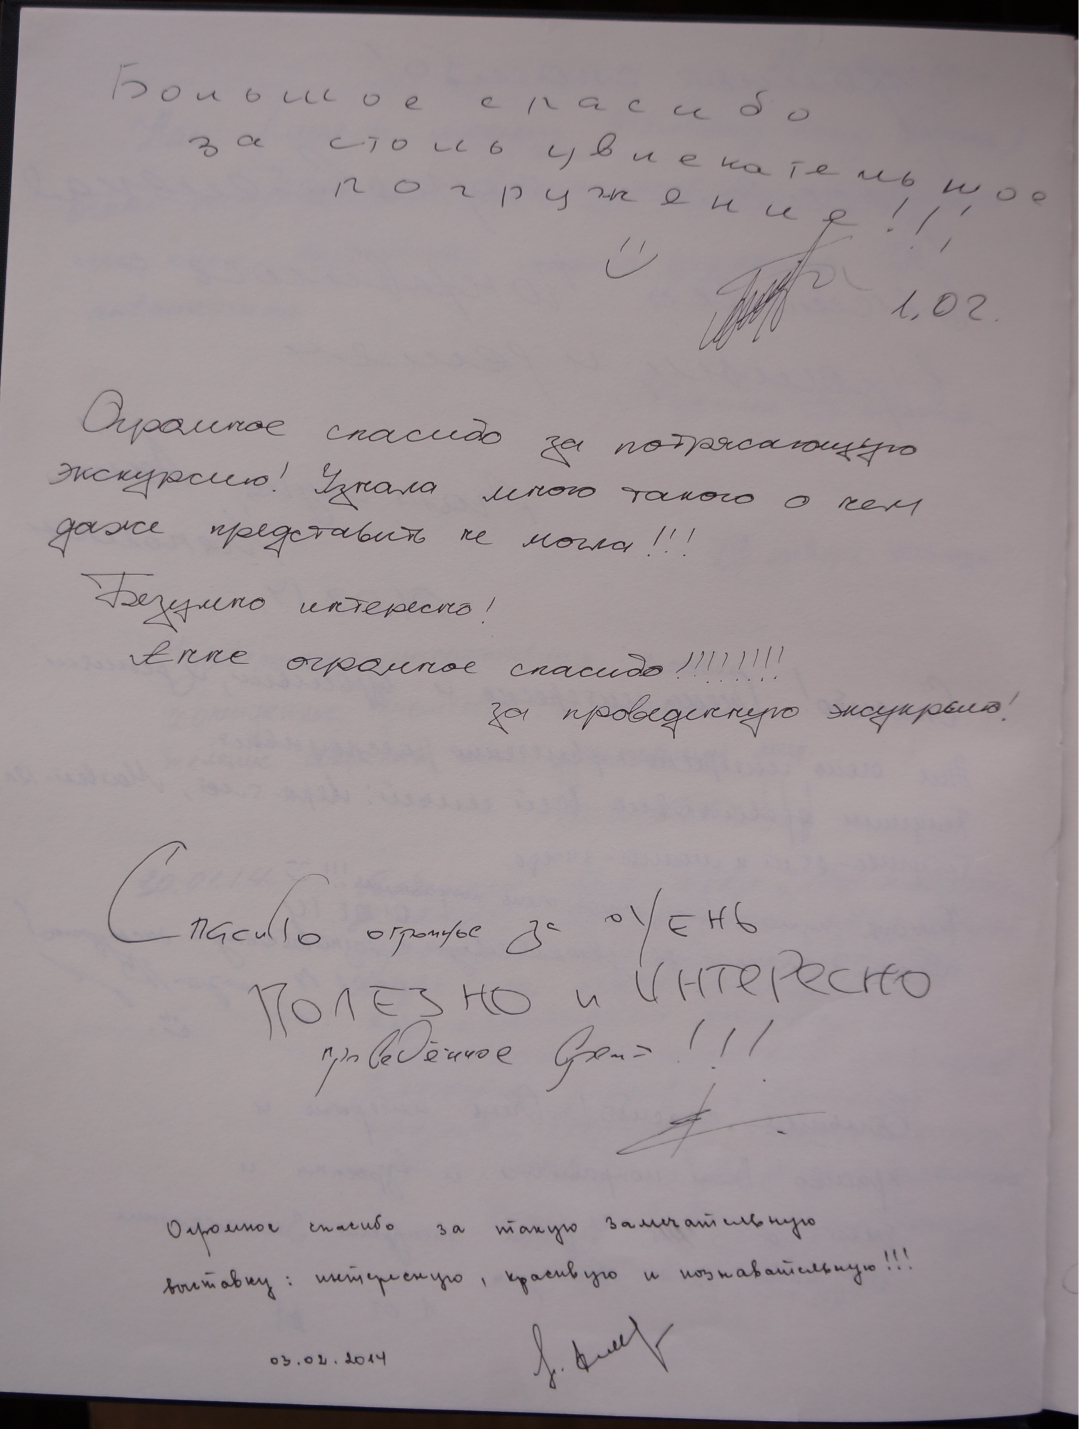 Большое спасибо
за столь увлекательное
погружение!!!
1.02.
Огромное спасибо за потрясающую
экскурсию! Узнала много такого о чем
даже представить не могла!!!
Безумно интересно!
Анне огромное спасибо!!!!!!!!
за проведенную эксукрсию!
Спасибо огромное за очень
ПОЛЕЗНО и ИНТЕРЕСНО
проведённое время!!!
Огромное спасибо за такую замечательную
выставку: интересную, красивую и познавательную!!!
03.02.2014